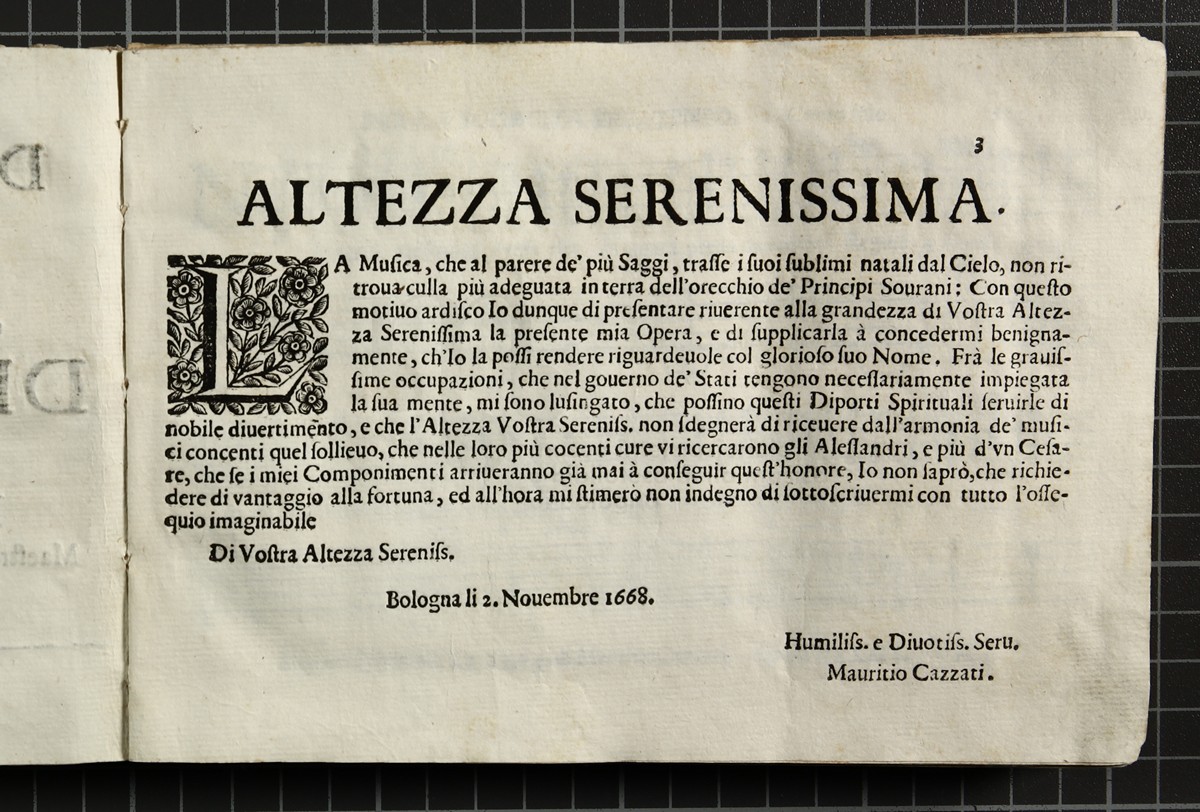 3
ALTEZZA SERENISSIMA.
LA Muſica, che al parere de' più Saggi, traſſe i ſuoi ſublimi natali dal Cielo, non ri-
troua culla più adeguata in terra dell'orecchio de' Principi Sourani: Con queſto
motiuo ardiſco Io dunque di preſentare riuerente alla grandezza di Voſtra Altez-
za Sereniſſima la preſente mia Opera, e di ſupplicarla à concedermi benigna-
mente, ch'Io la poſſi rendere riguardeuole col glorioſo ſuo Nome. Frà le grauiſ-
ſime occupazioni, che nel gouerno de' Stati tengono neceſſariamente impiegata
la ſua mente, mi ſono luſingato, che poſſino queſti Diporti Spirituali ſeruirle di
nobile diuertimento, e che l'Altezza Voſtra Sereniſs. non ſdegnerà di riceuere dall'armonia de' muſi-
ci concenti quel ſollieuo, che nelle loro più cocenti cure vi ricercarono gli Aleſſandri, e più d'vn Ceſa-
re, che ſe i miei Componimenti arriueranno già mai à conſeguir queſt'honore, Io non ſaprò, che richie-
dere di vantaggio alla fortuna, ed all'hora mi ſtimerò non indegno di ſottoſcriuermi con tutto l'oſſe-
quio imaginabile
Di Voſtra Altezza Sereniſs.
Bologna li 2. Nouembre 1668.
Humiliſs. e Diuotiſs. Seru.
Mauritio Cazzati.